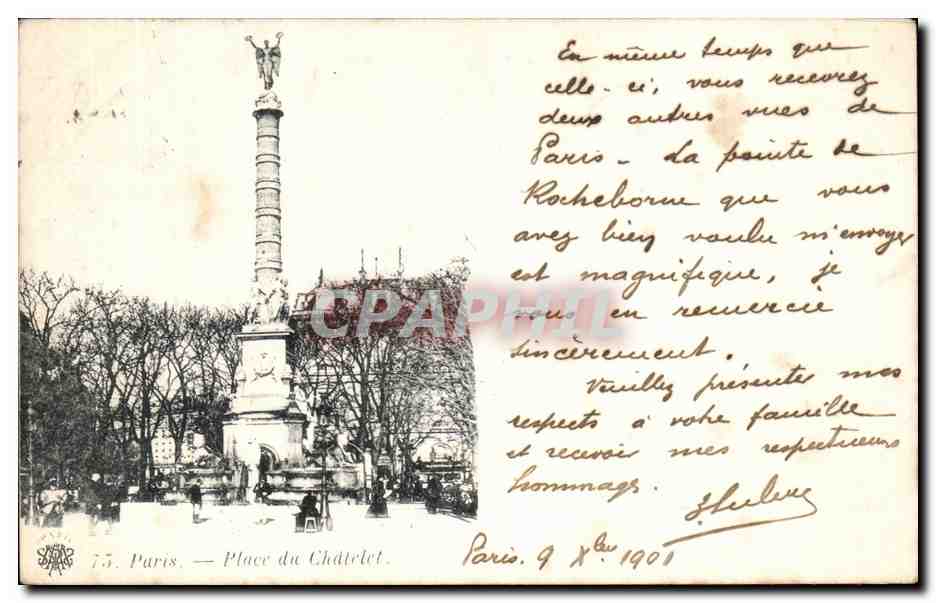 En même temps que
celle-ci, vous recevrez
deux autres vues de
Paris - La pointe de
Rocheborne que vous
avez bien voulu m'envoyer
est magnifique, je
vous en remercie
sincèrement.
Veuillez présenter mes
respects à votre famille
et recevoir mes respectueux
hommages.
Paris. 9 Xbre 1901
75. Paris. — Place du Châtelet.
CPAPhil